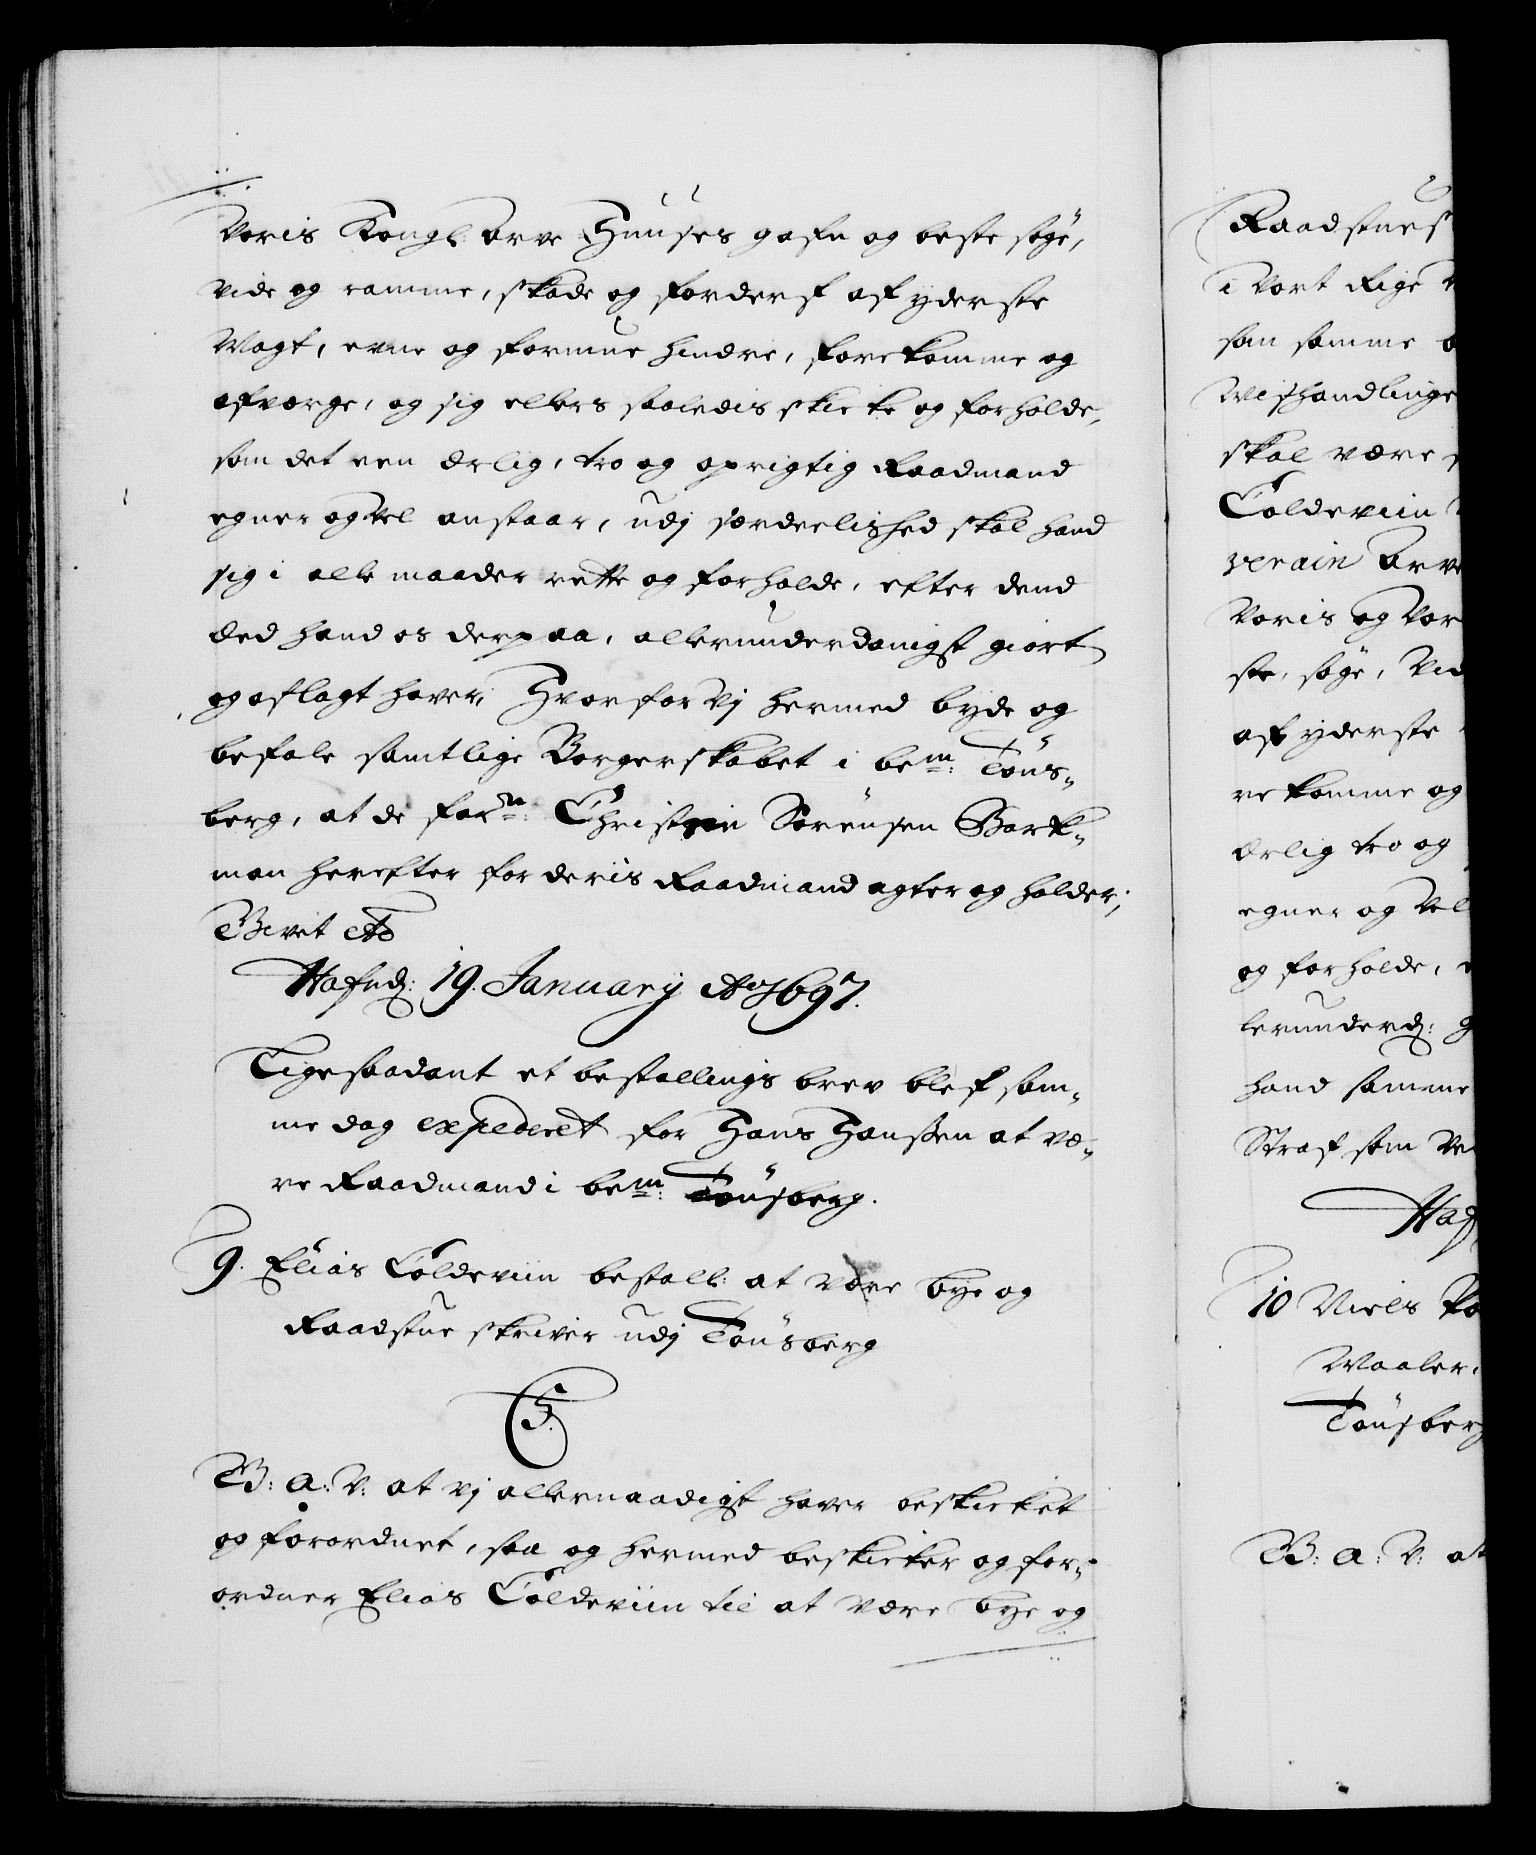 Voris Kongl: arve Huuses gafn og beste søge,
vide og ramme, skade og forderf af yderste
Magt, evne og formue hindre, forekomme og
afværge, og sig ellers saaledis skicke og forholde,
som det een ærlig, tro og oprigtig Raadmand
egner og vel anstaar, udj særdeelished skal hand
sig i alle maader rette og forholde, efter dend
Eed hand os derpaa, allerunderdanigst giort
og aflagt haver, Hvorfor Vj hermed byde og
befale samtlige Borgerskabet i bem: Tøns-
berg, at de forn: Christen Sørensen Bark-
man herefter for deris Raadmand agter og holder;
Givet etc
Hafn: 19. January Ao 1697.
Ligesaadant et bestallings brev blef sam-
me dag expederet for Hans Hanssen at væ-
re Raadmand i bem: Tønsberg.
9. Elias Coldeviin bestall: at være bye og
Raadstue skriver udj Tønsberg
C5.
G: A: V: at vj allernaadigst haver beskicket
og forordnet, saa og hermed beskicker og for-
ordner Elias Coldeviin til at være bye og
Raadstues
i Vort Rige
som samme
Mishandlinge
skal være
Coldeviin
verain arve
Voris og Vor
ste, søge, vid
af yderste
rekomme og
ærlig tro og
egner og vel
og forholde,
lerunderd: g
hand samme
Straf som ve
Haf
10 Niels
Maaler,
Tønsberg
G: A: V: at